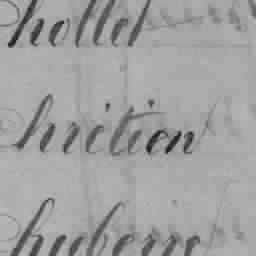 hollet
hrétien
huberne